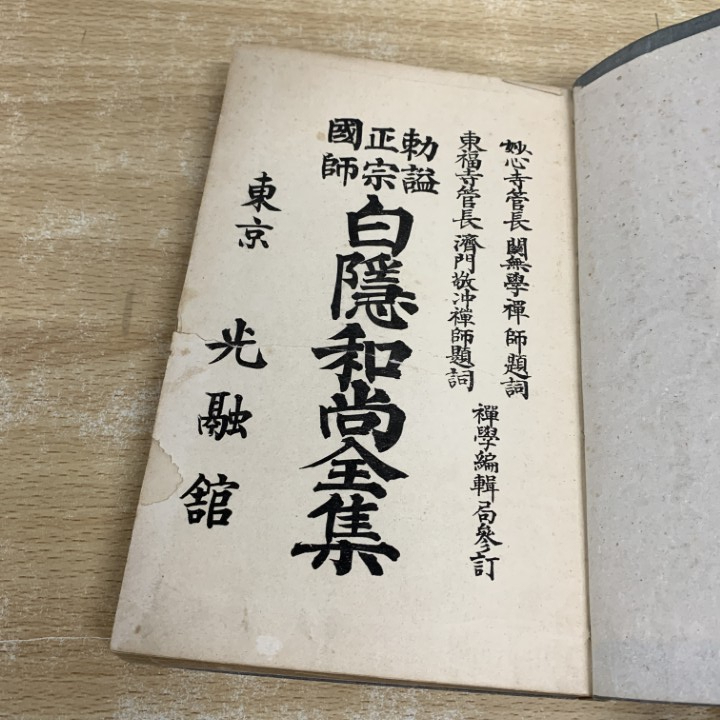 妙心寺管長關無學禪師題詞
東福寺管長濟門敬冲禪師題詞
禪學編輯局參訂
勅謚
正宗
國師
白隱和尚全集
東京
光融舘